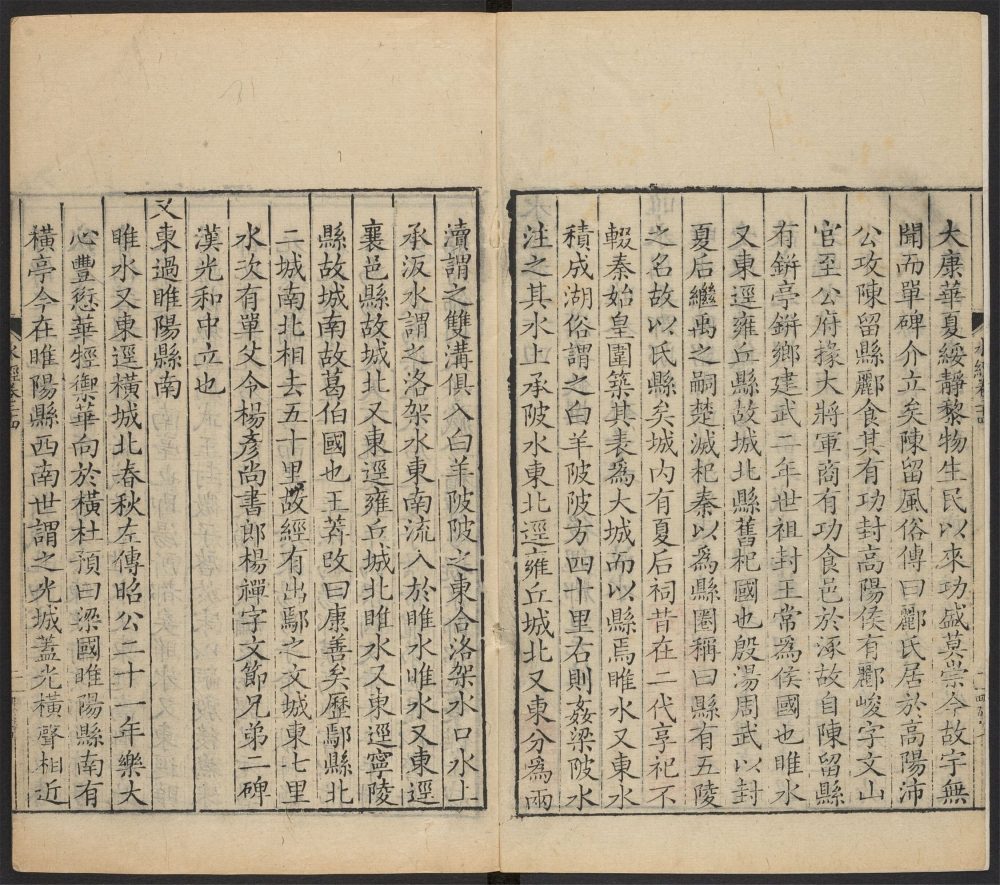 大康華夏綏靜黎物生民以來功盛莫崇今故字無
聞而單碑介立矣陳留風俗傳曰酈氏居於高陽沛
公攻陳留縣酈食其有功封高陽侯有酈峻字文山
官至公府掾大將軍商有功食邑於涿故自陳留縣
有鉼亭鉼鄉建武二年世祖封王常爲侯國也睢水
又東逕雍丘縣故城北縣舊杞國也殷湯周武以封
夏后繼禹之嗣楚滅杞秦以爲縣圈稱曰縣有五陵
之名故以氏縣矣城內有夏后祠昔在二代享祀不
輟秦始皇圍築其表爲大城而以縣焉睢水又東水
積成湖俗謂之白羊陂陂方四十里右則姦梁陂水
注之其水上承陂水東北逕雍丘城北又東分爲兩
瀆謂之雙溝俱入白羊陂陂之東合洛架水口水上
承汳水謂之洛架水東南流入於睢水睢水又東逕
襄邑縣故城北又東逕雍丘城北睢水又東逕寧陵
縣故城南故葛伯國也王莽改曰康善矣歷鄢縣北
二城南北相去五十里故經有出鄢之文城東七里
水次有單父令楊彥尚書郎楊禪字文節兄弟二碑
漢光和中立也
又東過睢陽縣南
睢水又東逕橫城北春秋左傳昭公二十一年樂大
心豐愆華牼御華向於橫杜預曰梁國睢陽縣南有
橫亭今在睢陽縣西南世謂之光城蓋光橫聲相近